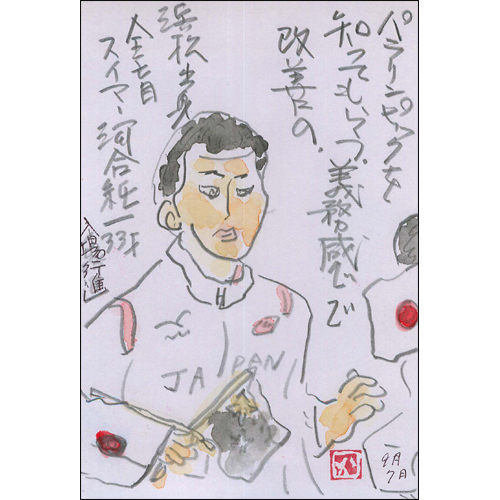 パラリンピックを
知ってもらう、義務感で
改善の、
浜松出身
全盲
スイマー河合純一33才
JAPAN
9月
7日